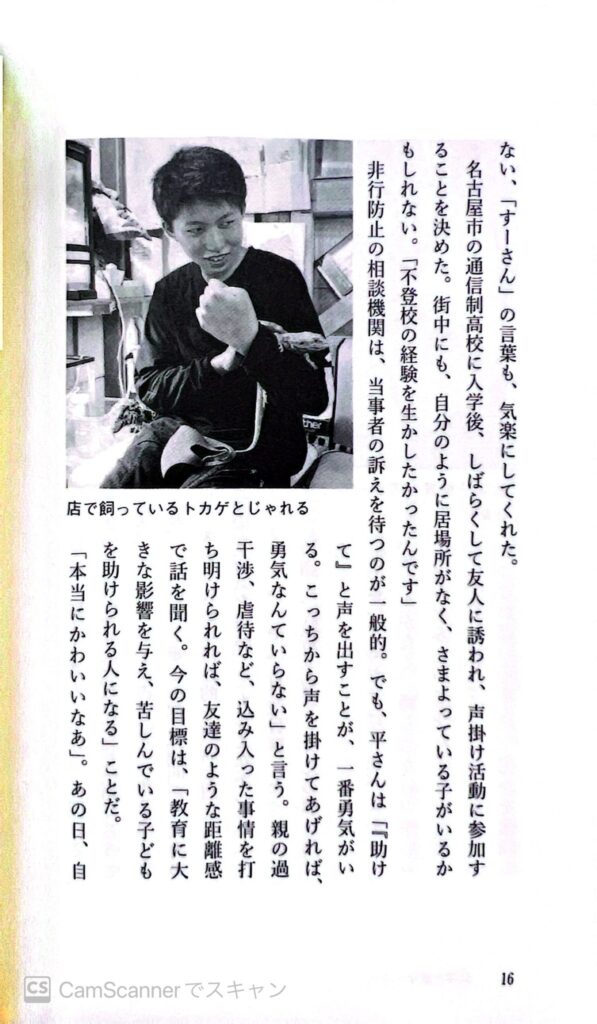 ない、「すーさん」の言葉も、気楽にしてくれた。
名古屋市の通信制高校に入学後、しばらくして友人に誘われ、声掛け活動に参加す
ることを決めた。街中にも、自分のように居場所がなく、さまよっている子がいるか
もしれない。「不登校の経験を生かしたかったんです」
非行防止の相談機関は、当事者の訴えを待つのが一般的。でも、平さんは「『助け
て』と声を出すことが、一番勇気がい
る。こっちから声を掛けてあげれば、
勇気なんていらない」と言う。親の過
干渉、虐待など、込み入った事情を打
ち明けられれば、友達のような距離感
で話を聞く。今の目標は、「教育に大
きな影響を与え、苦しんでいる子ども
を助けられる人になる」ことだ。
「本当にかわいいなあ」。あの日、自
店で飼っているトカゲとじゃれる
ther
16
CS CamScannerでスキャン